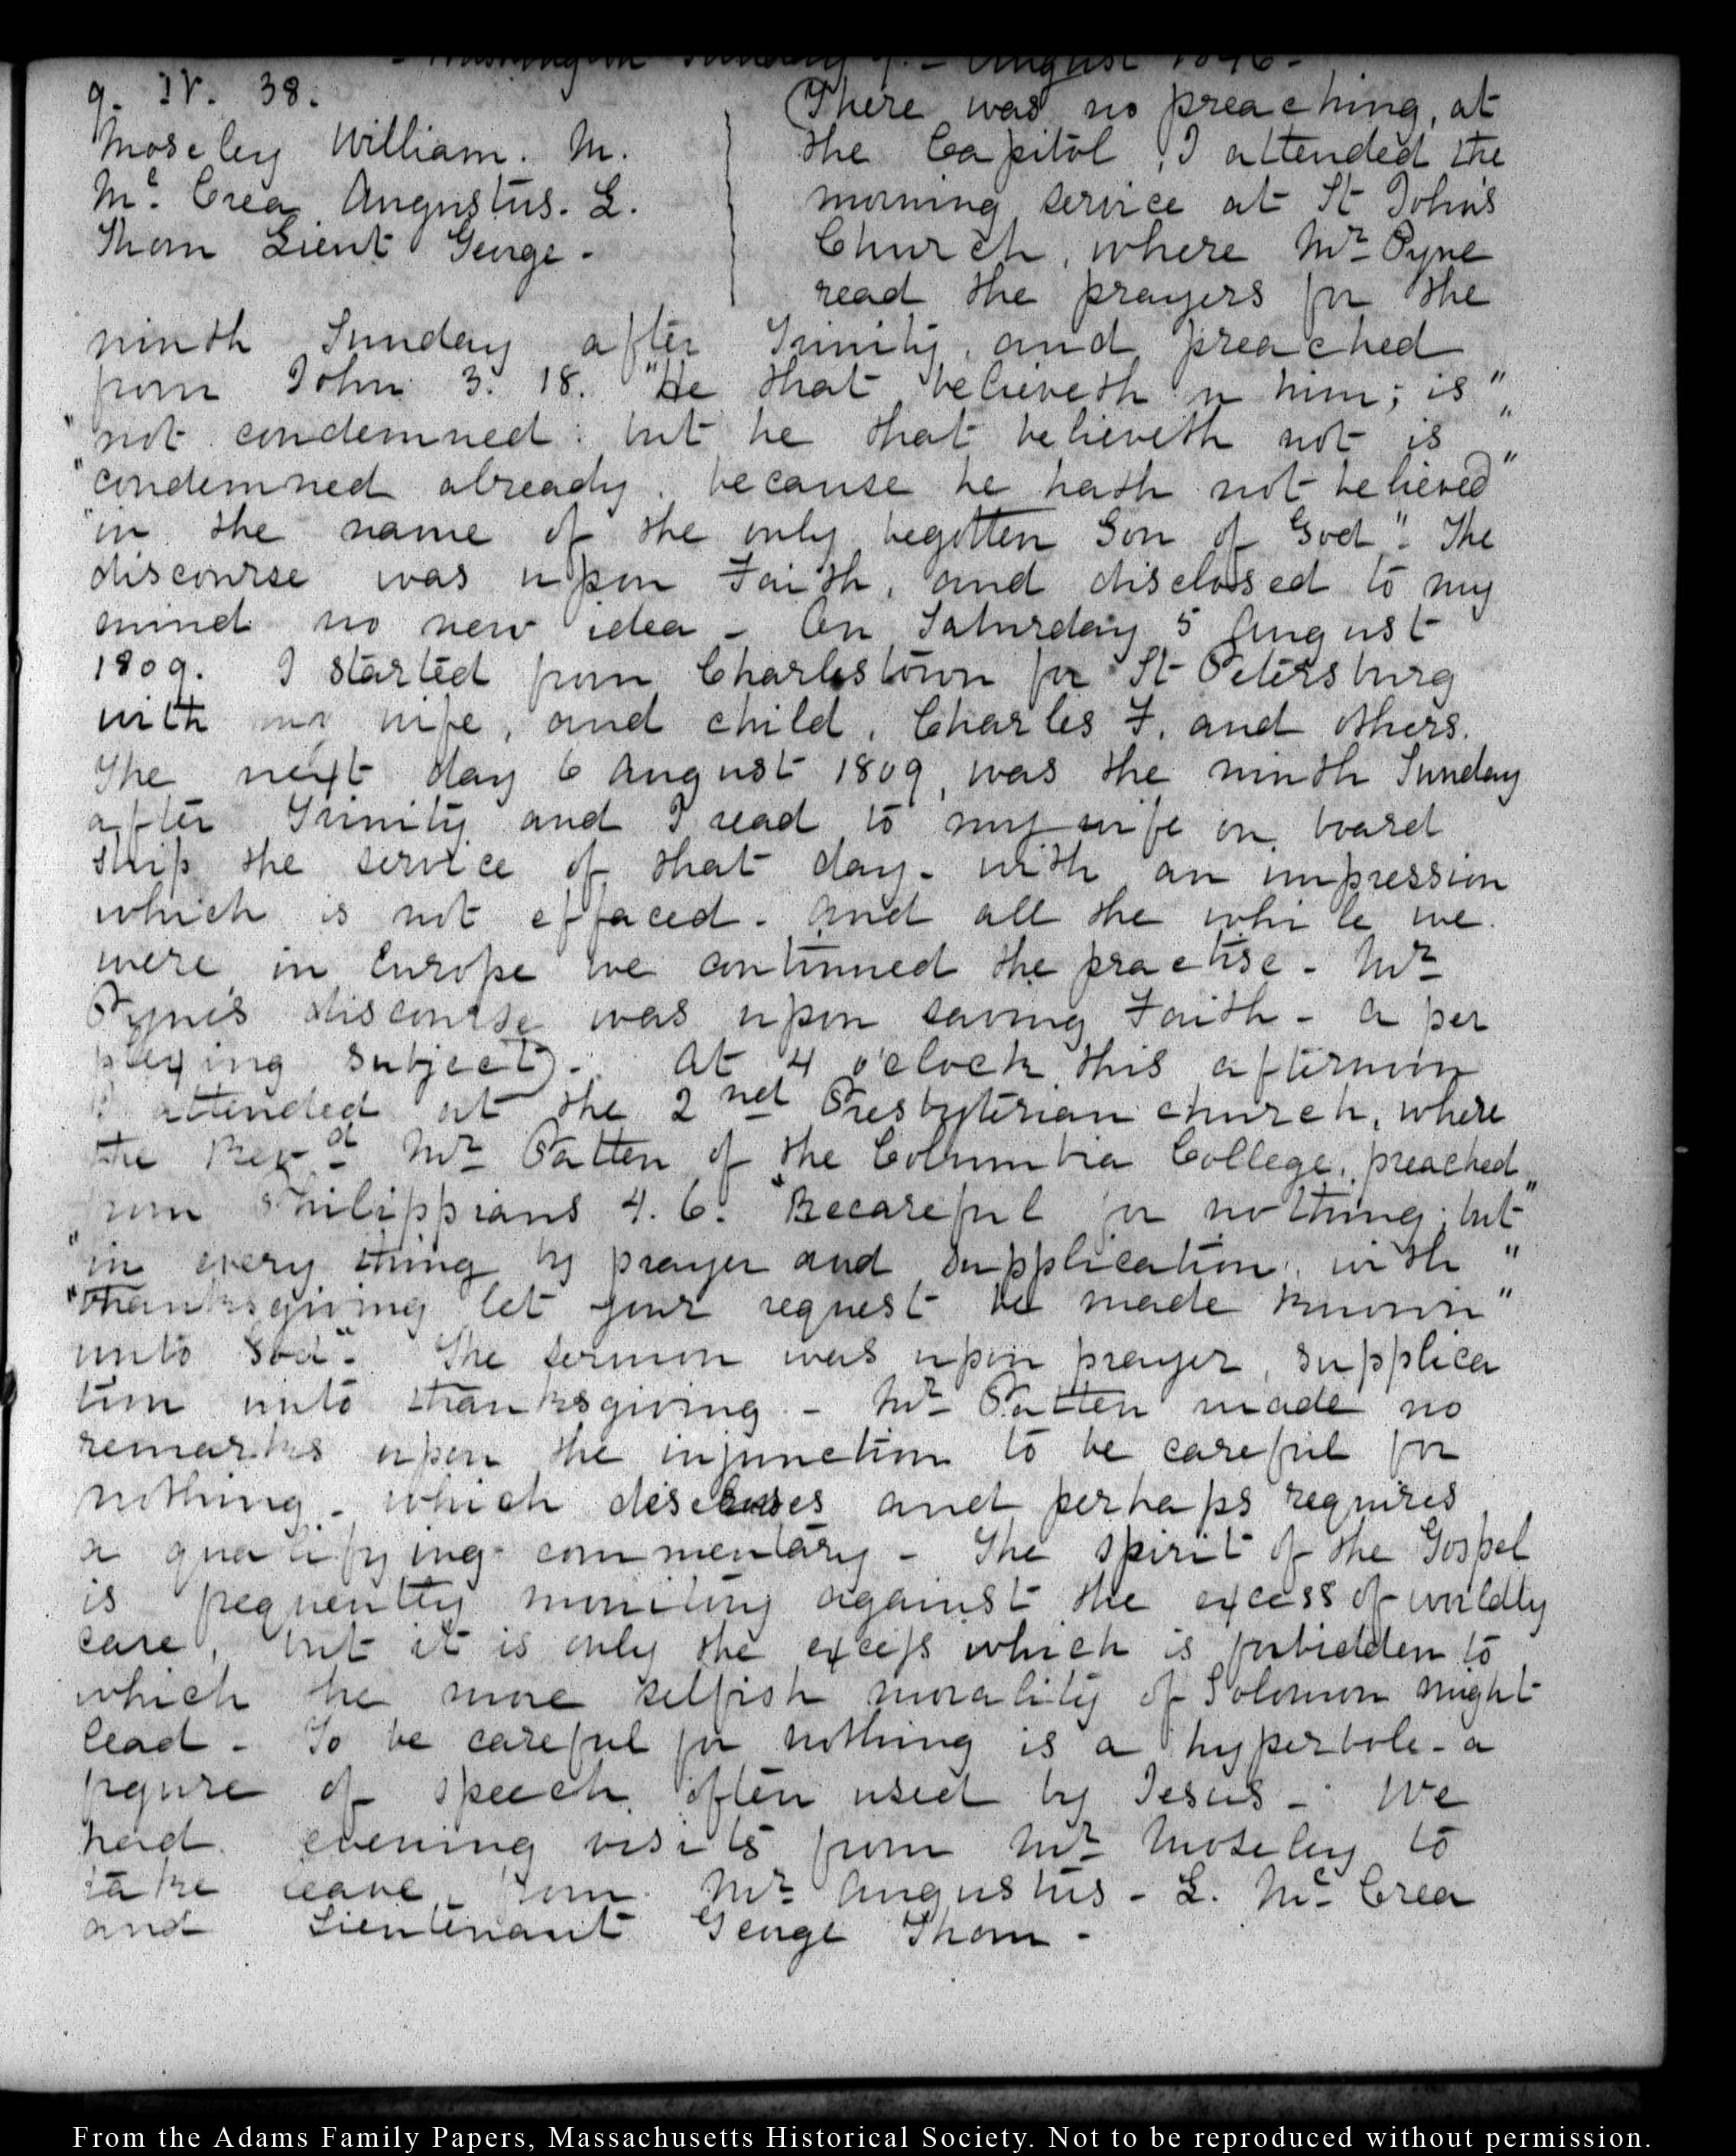 Washington Sunday 9. – August 1846 –
9. IV. 38.
Moseley William. M.
Mc. Crea Augustus. L.
Thom Lieut George -
(There was no preaching, at
the Capitol, I attended the
morning service at St John's
Church, where Mr Pyne
read the prayers for the
ninth Sunday after Trinity, and preached
from John 3. 18. "He that believeth in him; is"
"not condemned: but he that believeth not is"
"condemned already, because he hath not believed"
"in the name of the only begotten Son of God". The
discourse was upon Faith, and disclosed to my
mind no new idea – On Saturday 5 August
1809. I started from Charlestown for St Petersburg
with my wife, and child, Charles F. and others.
The next day 6 August 1809, was the ninth Sunday
after Trinity and I read to my wife on board
ship the service of that day - with an impression
which is not effaced - and all the while we
were in Europe we continued the practise - Mr
Pyne's discourse was upon saving Faith - a per
plexing subject) - At 4 o'clock this afternoon
I attended at the 2nd Presbyterian church, where
the Revd Mr Patten of the Columbia College, preached
from Philippians 4. 6. "Becareful for nothing; but"
"in every thing by prayer and supplication, with"
"thanksgiving let your request be made known"
unto God". The sermon was upon prayer, supplica
tion unto thanksgiving - Mr Patten made no
remarks upon the injunction to be careful for
nothing - which and perhaps requires
a qualifying commentary - The spirit of the Gospel
is frequently against the excess of worldly
care, but it is only the excess which is forbidden to
which the more selfish morality of Solomon might
lead - To be careful for nothing is a hyperbole - a
figure of speech often used by Jesus - We
had evening visits from Mr Moseley to
take leave, from Mr Augustus - L. Mc Crea
and Lieutenant George Thom -
From the Adams Family Papers, Massachusetts Historical Society. Not to be reproduced without permission.